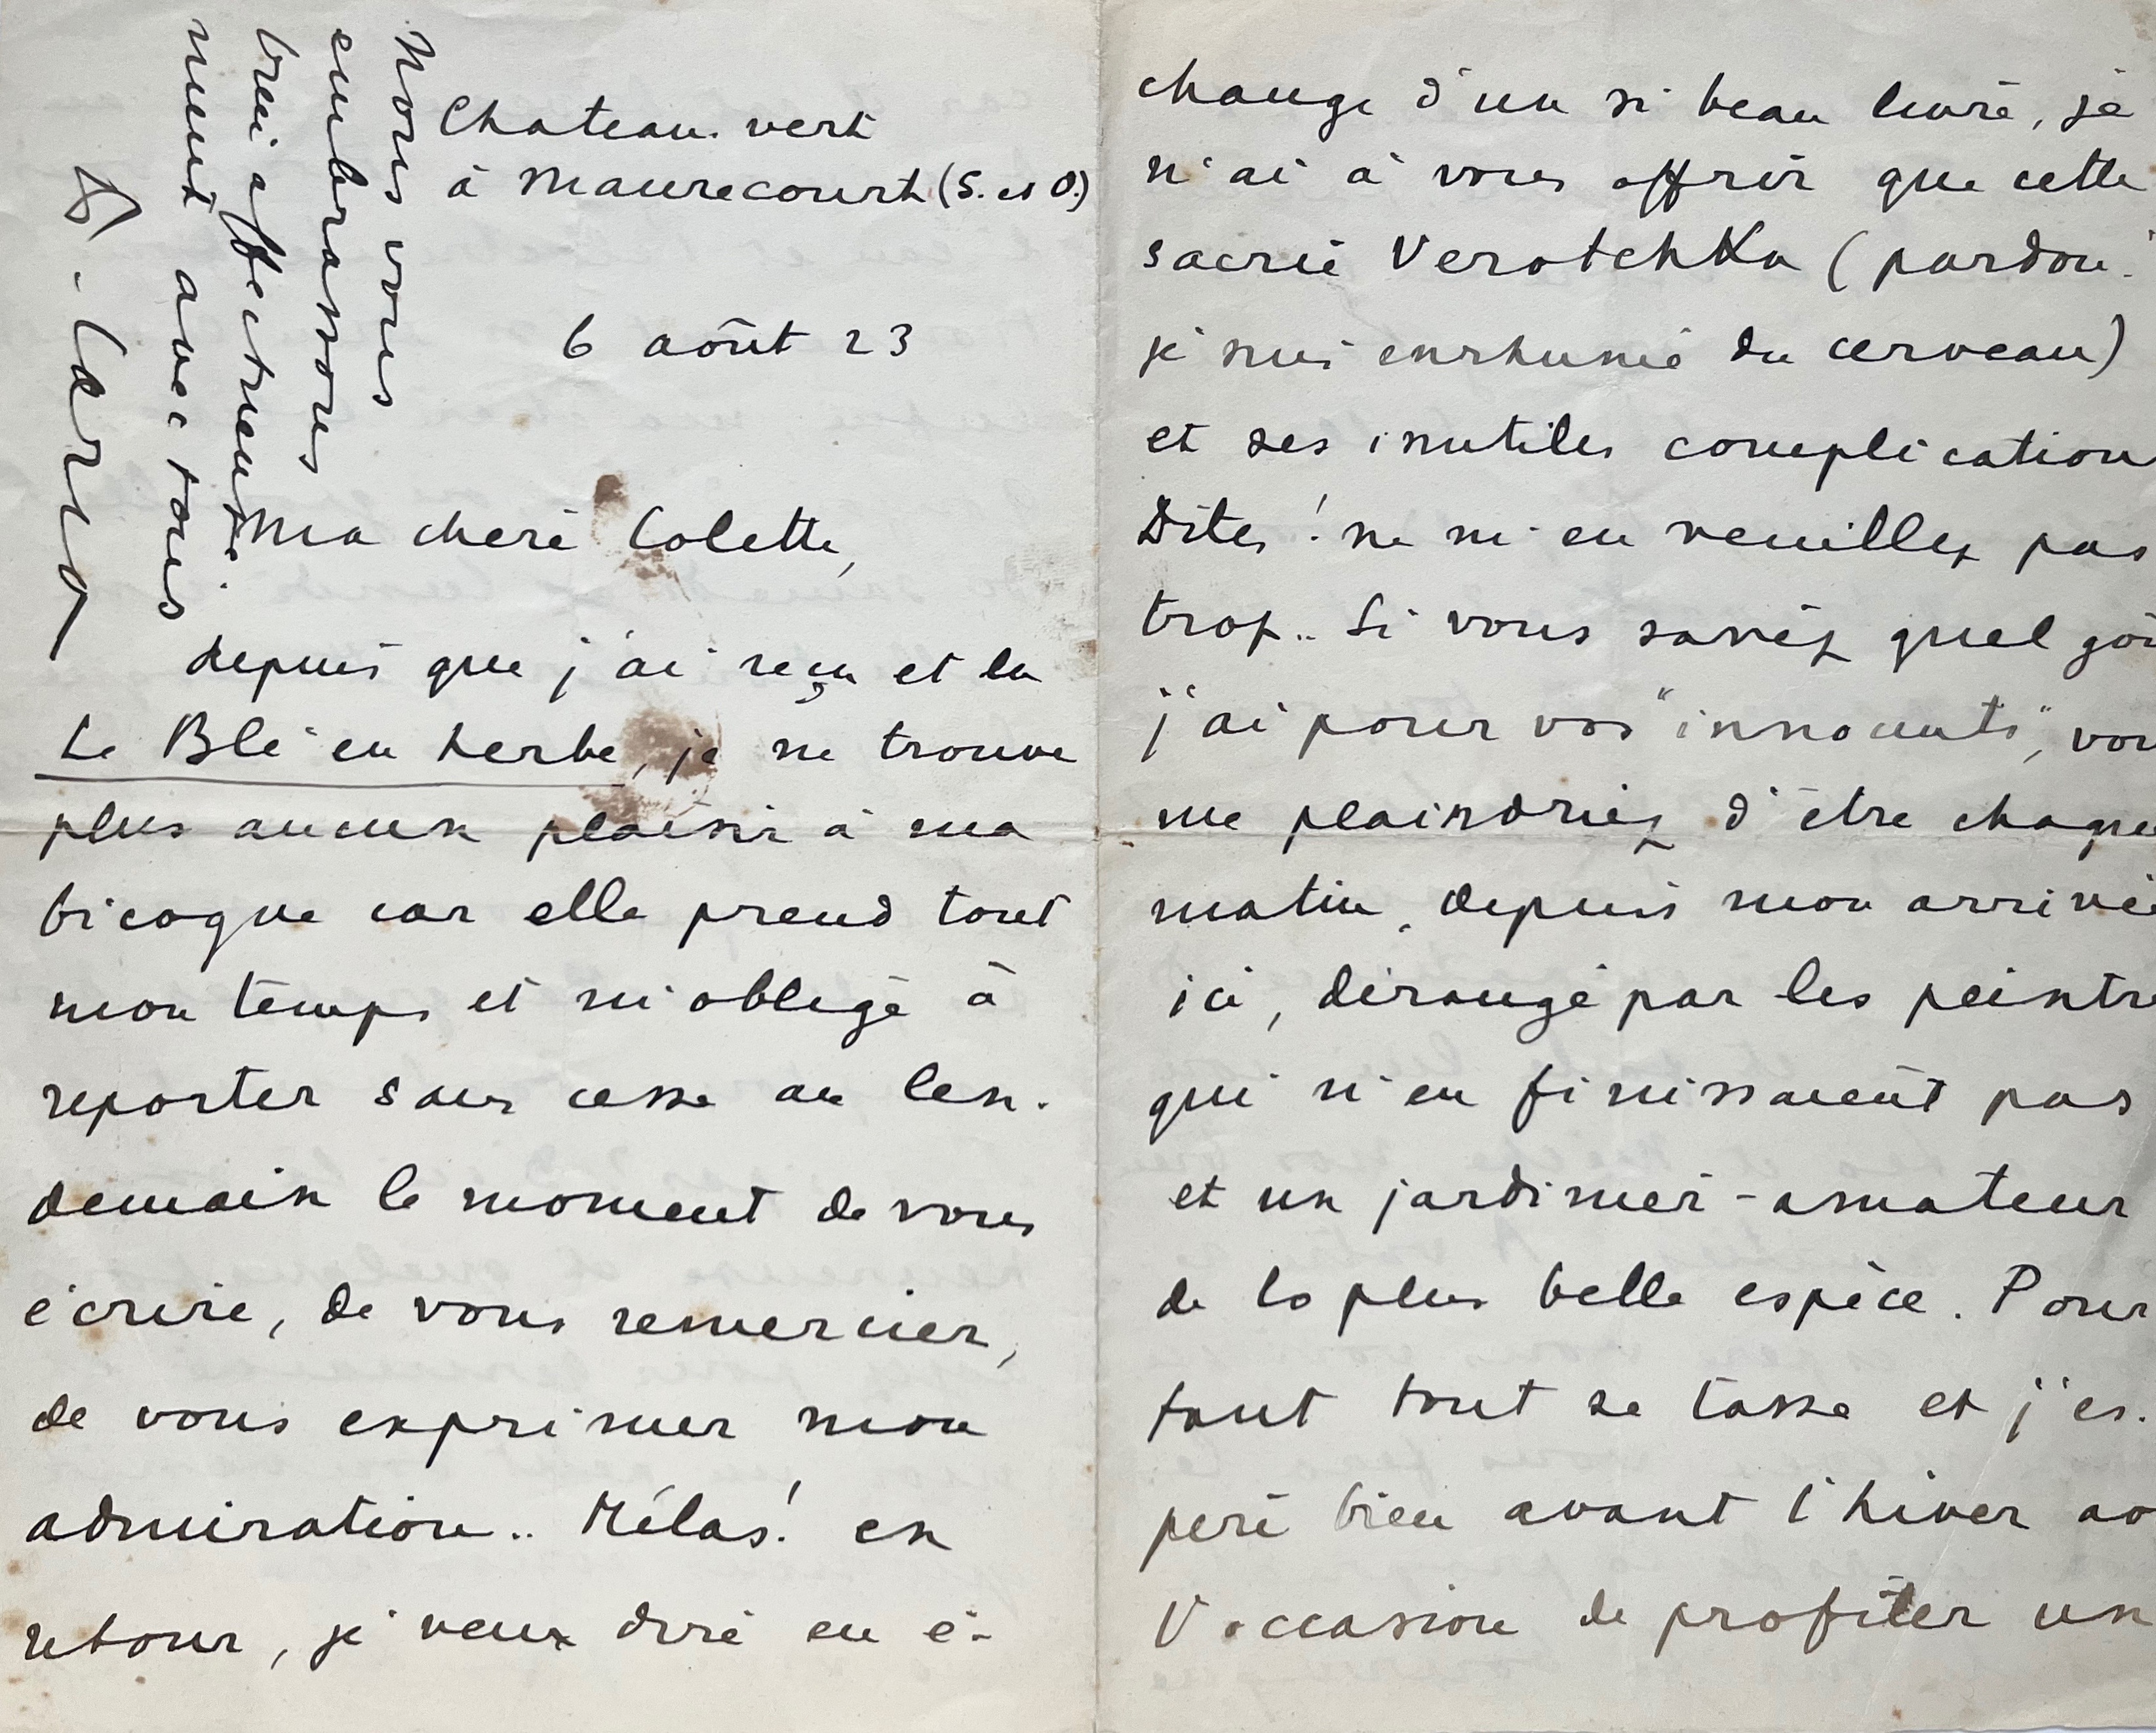 Chateau-vert
à Maurecourt (S. et O.)
6 août 23
Ma chère Colette,
depuis que j'ai reçu et lu
Le Blé en herbe, je ne trouve
plus aucun plaisir à ma
bicoque car elle prend tout
mon temps et m'oblige à
reporter sans cesse au len-
demain le moment de vous
écrire, de vous remercier,
de vous exprimer mon
admiration.. Hélas! en
retour, je veux dire en é-
change d'un si beau livre, je
n'ai à vous offrir que cette
sacrée Verotchka (pardon:
je suis enrhumé du cerveau)
et ses inutiles complication
Dites! ne m'en veuillez pas
trop.. Si vous saviez quel goû
j'ai pour vos "innocents", vou
me plaindriez d'être chaque
matin, depuis mon arrivée
ici, dérangé par les peintre
qui n'en finissaient pas
et un jardinier-amateur
de la plus belle espèce. Pour
tant tout se tasse et j'es-
père bien avant l'hiver av
l'occasion de profiter un
Nous vous
embrassons
bien affectueuse-
ment avec tous